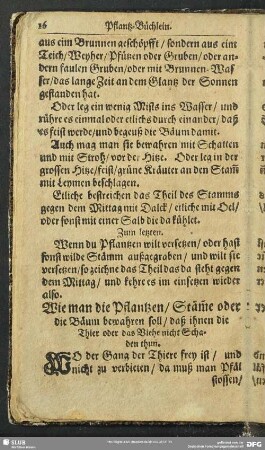 16 Pflantz-Büchlein.
aus eim Brunnen geschöpfft / sondern aus eim
Teich / Weyher / Pfützen oder Gruben / oder an-
dern faulen Gruben / oder mit Brunnen-Was-
ser / das lange Zeit an dem Glantz der Sonnen
gestanden hat.
Oder leg ein wenig Mists ins Wasser / und
rühre es einmal oder etlichs durch einander / daß
es feist werde / und begeuß die Bäum damit.
Auch mag man sie bewahren mit Schatten
und mit Stroh / vor der Hitze. Oder leg in der
grossen Hitze / feist / grüne Kräuter an den Stam̃
mit Leymen beschlagen.
Etliche bestreichen das Theil des Stamms
gegen dem Mittag mit Kalck / etliche mit Oel /
oder sonst mit einer Salb die da kühlet.
Zum letzten.
Wenn du Pflantzen wilt versetzen / oder hast
sonst wilde Stämm außgegraben / und wilt sie
versetzen / so zeichne das Theil das da steht gegen
dem Mittag / und kehre es im einsetzen wieder
also.
Wie man die Pflantzen / Stäm̃e oder
die Bäum bewahren soll / daß ihnen die
Thier oder das Viehe nicht Scha-
den thun.
WO der Gang der Thiere frey ist / und
nicht zu verbieten / da muß man Pfäl
stossen /
SLUB
DFG